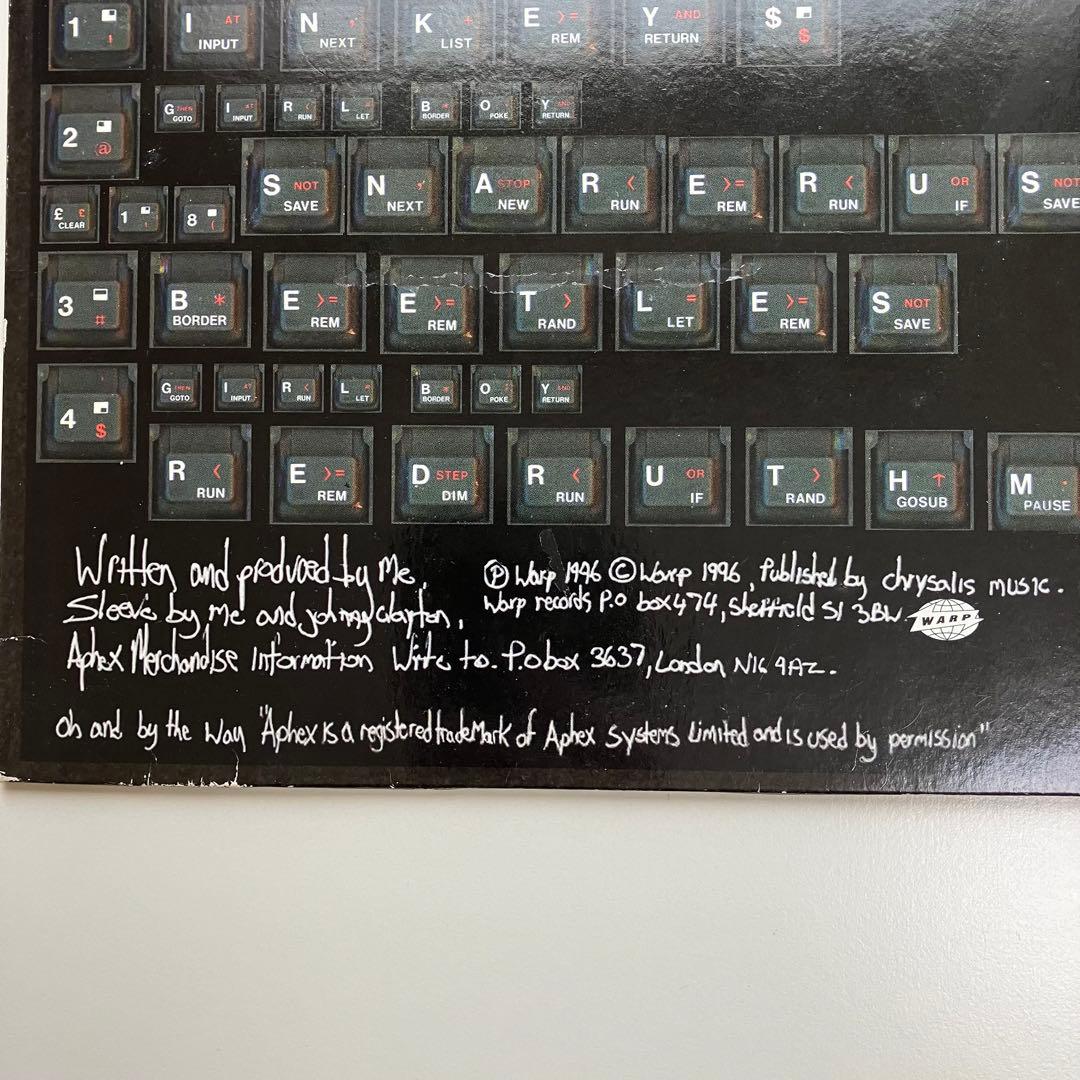 1 ! I AT INPUT N , NEXT K + LIST E >= REM Y AND RETURN $ $
2 @ G THEN GOTO I AT INPUT R < RUN L = LET B * BORDER O POKE Y AND RETURN
S NOT SAVE N , NEXT A STOP NEW R < RUN E >= REM R < RUN U OR IF S NOT SAVE
£ £ CLEAR 1 ! 8 (
3 # B * BORDER E >= REM E >= REM T > RAND L = LET E >= REM S NOT SAVE
4 $ G THEN GOTO I AT INPUT R < RUN L = LET B * BORDER O POKE Y AND RETURN
R < RUN E >= REM D STEP DIM R < RUN U OR IF T > RAND H ↑ GOSUB M . PAUSE
Written and produced by Me,
Sleeve by Me and johnny clayton,
Aphex Merchandise Information Write to. P.o box 3637, London N16 9AZ.
Ⓟ Warp 1996 © Warp 1996, Published by chrysalis music.
Warp records P.O box 474, Sheffield S1 3BW. WARP
oh and by the way "Aphex is a registered trademark of Aphex Systems Limited and is used by permission"